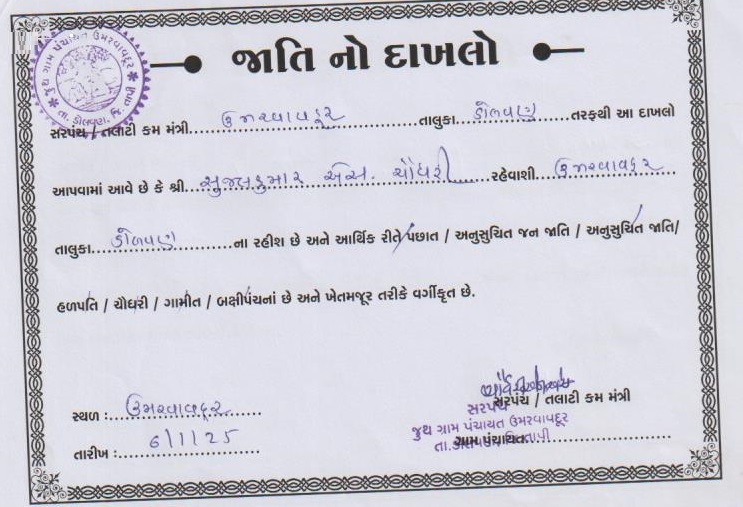 જુથ ગ્રામ પંચાયત ઉમરવાવદૂર
તા. ડોલવણ, જિ. તાપી
જાતિ નો દાખલો
સરપંચ / તલાટી કમ મંત્રી ઉમરવાવદૂર તાલુકા ડોલવણ તરફથી આ દાખલો
આપવામાં આવે છે કે શ્રી સુજલકુમાર એસ. ચૌધરી રહેવાશી ઉમરવાવદુર
તાલુકા ડોલવણ ના રહીશ છે અને આર્થિક રીતે પછાત / અનુસુચિત જન જાતિ / અનુસુચિત જાતિ/
હળપતિ / ચૌધરી / ગામીત / બક્ષીપંચનાં છે અને ખેતમજૂર તરીકે વર્ગીકૃત છે.
સ્થળ : ઉમરવાવદૂર
તારીખ : ૬/૧/૨૫
સરપંચ / તલાટી કમ મંત્રી
સરપંચ
જુથ ગ્રામ પંચાયત ઉમરવાવદૂર
ગ્રામ પંચાયત
તા.ડોલવણ જિ.તાપી